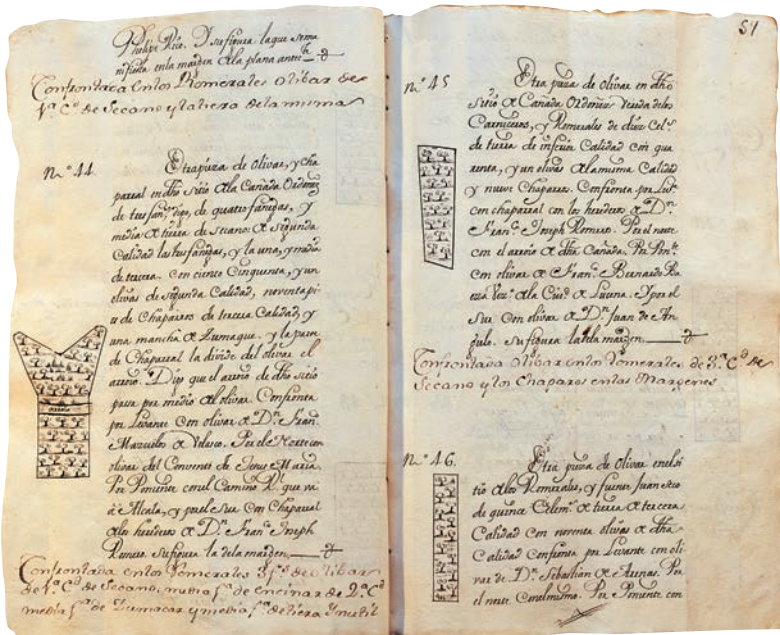 Phelipe Rico. Y su figura la que se ma
nifiesta en la margen a la plana antec.te
Confrontada en los Romerales olibar de
1ª C.d de Secano y la tiera de la misma
Nº 44. Otra pieza de olivar, y cha
parral en dho sitio a la Cañada Ordoñez
de quatro fanegas, y
media a tierra de Secano a segunda
Calidad las tres fanegas, y la una, y media
de tercera. con ciento Cinquenta, y un
olivos de segunda Calidad, noventa pi
es de Chaparros de tercera Calidad, y
una mancha a Zumaque. y la parte
de Chaparral la divide del olivar el
arroio. Dijo que el arroio de dho sitio
pasa por medio al olivar. Confronta
por Levante con olivar a D.n Fran.co
Marzuelos a Velasco. Por el Norte con
olivar del Convento de Jesus Maria.
Por Poniente con el Camino R.l que va
a Alcala, y por el Sur con Chaparral
a los herederos a D.n Fran.co Joseph
Romero. Su figura la de la margen.
arroio
Confrontada en los Romerales 3 f.s de olibar
de 1ª C.d de Secano, media f.a de encinar de 2ª C.d
media f.a de Zumacar y media f.a de tiera Ynutil
51
Nº 45 Otra pieza de olivar en dho
sitio a Cañada Ordoñez Vereda de los
Carniceros, y Romerales de diez Cel.s
de tierra de inferior Calidad con qua
renta, y un olivos a la misma Calidad
y nueve Chaparros. Confronta por Lev.te
con chaparral con los herederos a D.n
Fran.co Joseph Romero. Por el norte
con el arroio a dha Cañada. Por Pon.te
con olivar a Fran.co Bernardo
Vez.o a la Ciud.d a Lucena. Y por el
Sur con olivar a D.n Juan de An
gulo. Su figura la de la margen.
Confrontada olibar en los Romerales de 3ª C.d de
Secano y los Chaparos en las Margenes
Nº 46. Otra pieza de olivar en el si
tio a los Romerales, y fuente Juan
de quince Celem.s a tierra a tercera
Calidad con noventa olivos a dha
Calidad Confronta por Levante con oli
var de D.n Sebastian a Arenas. Por
el norte con el mismo. Por Poniente con